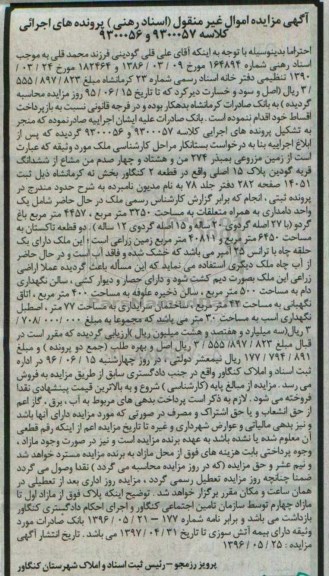 آگهی مزایده اموال غیر منقول (اسناد رهنی) پرونده های اجرائی
کلاسه ۹۳۰۰۰۵۷ و ۹۳۰۰۰۵۶
احتراما بدینوسیله با توجه به اینکه آقای علی قلی گودینی فرزند محمد قلی به موجب
اسناد رهنی شماره ۱۶۴۸۹۴ مورخ ۰۹ / ۰۳ / ۱۳۸۶ و ۱۸۲۴۶۴ مورخ ۲۴ / ۰۳ /
۱۳۹۰ تنظیمی دفتر خانه اسناد رسمی شماره ۲۳ کرمانشاه مبلغ ۸۲۳ / ۸۹۷ / ۵۵۵
/ ۳ ریال (اصل و سود و خسارت دیرکرد که تا تاریخ ۱۵ / ۰۶ / ۹۵ روز مزایده محاسبه
گردیده) به بانک صادرات کرمانشاه بدهکار بوده و در فرجه قانونی نسبت به بازپرداخت
اقساط خود اقدام ننموده است . بانک صادرات علیه ایشان اجراییه صادر نموده که منجر
به تشکیل پرونده های اجرایی کلاسه ۹۳۰۰۰۵۷ و ۹۳۰۰۰۵۶ گردیده که پس از
ابلاغ اجراییه بنا به درخواست بستانکار مراحل کارشناسی ملک مورد وثیقه که عبارت
است از زمین مزروعی بمبذر ۲۷۴ من و هشتاد و چهار صدم من مشاع از ششدانگ
قریه گودین پلاک ۱۵ اصلی واقع در قطعه ۲ کنگاور بخش نه کرمانشاه ذیل ثبت
۱۴۰۵۱ صفحه ۲۸۲ دفتر جلد ۷۸ به نام مدیون نامبرده به شرح حدود مندرج در
پرونده ثبتی ، انجام که برابر گزارش کارشناس رسمی ملک در حال حاضر شامل یک
واحد دامداری به همراه متعلقات به مساحت ۳۲۵۰ متر مربع ، ۴۴۵۷ متر مربع باغ
گردو (با ۲۷ اصله گردوی ۲۰ ساله و ۱۵ اصله گردوی ۱۲ ساله) . دو قطعه تاکستان به
مساحت ۶۴۵۰ متر مربع و ۴۰۸۱۱ متر مربع زمین زراعی است . این ملک دارای یک
حلقه چاه با ترانس ۲۵ آمپر می باشد که خشک شده و فاقد آب است و در حال حاضر
از آب چاه ملک دیگری استفاده می نماید که این مسأله باعث گردیده عملا اراضی
زراعی این ملک بصورت دیم کشت شود و دارای حصار و دیوار کشی ، سالن نگهداری
دام به مساحت ۵۰۰ متر مربع ، سالن ذخیره علوفه به مساحت ۴۰۰ متر مربع ، اتاق
نگهبانی به مساحت ۴۳ متر مربع ، ساختمان سرایداری به مساحت ۷۷ متر ، اصطبل
نگهداری اسب به مساحت ۳۰ متر می باشد که مجموعا به مبلغ ۰۰۰ / ۰۰۰ / ۷۰۸ /
۳ ریال (سه میلیارد و هفتصد و هشت میلیون ریال) ارزیابی گردیده که مقرر است در
قبال مبلغ ۸۲۳ / ۸۹۷ / ۵۵۵ / ۳ ریال اصل و بهره طلب (جمع دو پرونده) و مبلغ
۸۹۱ / ۷۹۴ / ۱۷۷ ریال نیمعشر دولتی ، در روز چهارشنبه ۱۵ / ۰۶ / ۹۶ در اداره
ثبت اسناد و املاک کنگاور واقع در جنب دادگستری سابق از طریق مزایده به فروش
می رسد . مزایده از مبالغ پایه (کارشناسی) شروع و به بالاترین قیمت پیشنهادی نقدا
فروخته می شود . لازم به ذکر است پرداخت بدهی های مربوط به آب ، برق ، گاز اعم
از حق انشعاب و یا حق اشتراک و مصرف در صورتی که مورد مزایده دارای آنها باشد
و نیز بدهی مالیاتی و عوارض شهرداری و غیره تا تاریخ مزایده اعم از اینکه رقم قطعی
آن معلوم شده یا نشده باشد به عهده برنده مزایده است و نیز در صورت وجود مازاد ،
وجوه پرداختی بابت هزینه های فوق از محل مازاد به برنده مزایده مسترد خواهد شد
و نیم عشر و حق مزایده (که در روز مزایده محاسبه می گردد) نقدا وصول می گردد
ضمنا چنانچه روز مزایده تعطیل رسمی گردد ، مزایده روز اداری بعد از تعطیلی در
همان ساعت و مکان مقرر برگزار خواهد شد . توضیح اینکه پلاک فوق از مازاد اول تا
مازاد چهارم توسط سازمان تامین اجتماعی کنگاور و اجرای احکام دادگستری کنگاور
بازداشت می باشد و برابر نامه شماره ۱۷۷ - ۲۱ / ۰۵ / ۱۳۹۶ بانک صادرات مورد
وثیقه دارای بیمه آتش سوزی تا تاریخ ۳۱ / ۰۴ / ۱۳۹۷ می باشد . تاریخ انتشار آگهی
مزایده : ۲۵ / ۰۵ / ۱۳۹۶
پرویز رزمجو - رئیس ثبت اسناد و املاک شهرستان کنگاور